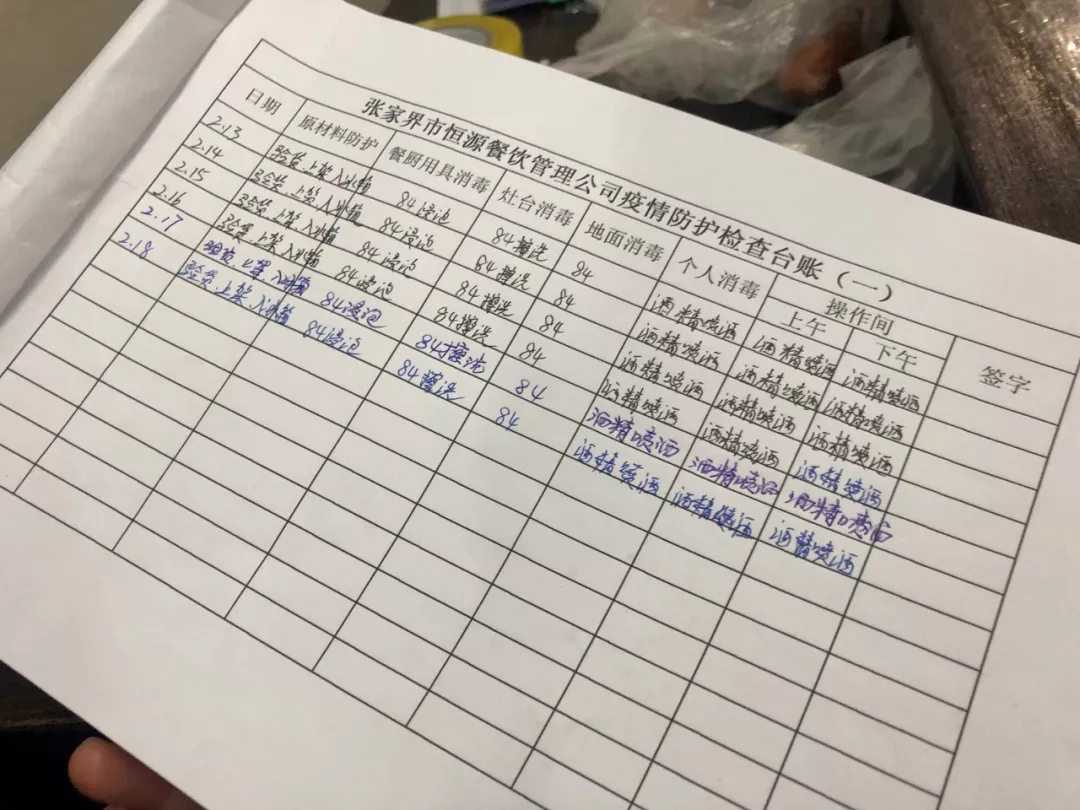 张家界市恒源餐饮管理公司疫情防护检查台账（一）
日期 原材料防护 餐厨用具消毒 灶台消毒 地面消毒 个人消毒 操作间 签字
上午 下午
2.13 验货、上架、入冰箱 84浸泡 84擦洗 84 酒精喷洒 酒精喷洒 酒精喷洒
2.14 验货、上架、入冰箱 84浸泡 84擦洗 84 酒精喷洒 酒精喷洒 酒精喷洒
2.15 验货、上架、入冰箱 84浸泡 84擦洗 84 酒精喷洒 酒精喷洒 酒精喷洒
2.16 验货、上架、入冰箱 84浸泡 84擦洗 84 酒精喷洒 酒精喷洒 酒精喷洒
2.17 验货 上架 入冰箱 84浸泡 84擦洗 84 酒精喷洒 酒精喷洒 酒精喷洒
2.18 验货、上架、入冰箱 84浸泡 84擦洗 84 酒精喷洒 酒精喷洒 酒精喷洒